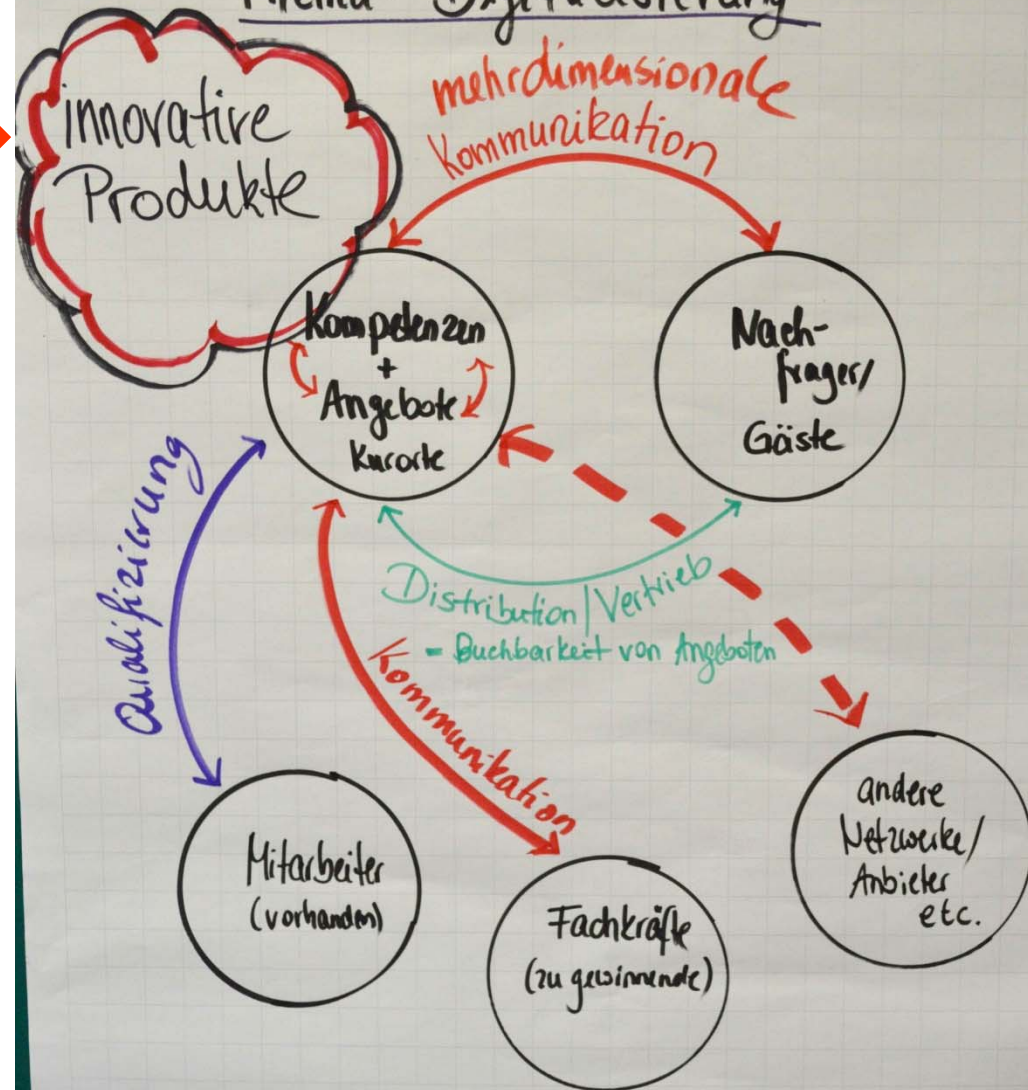 Thema Digitalisierung
innovative
Produkte
mehrdimensionale
Kommunikation
Kompetenzen
+
Angebote
Kurorte
Nach-
frager/
Gäste
Qualifizierung
Distribution/Vertrieb
- Buchbarkeit von Angeboten
Kommunikation
Mitarbeiter
(vorhanden)
Fachkräfte
(zu gewinnende)
andere
Netzwerke/
Anbieter
etc.